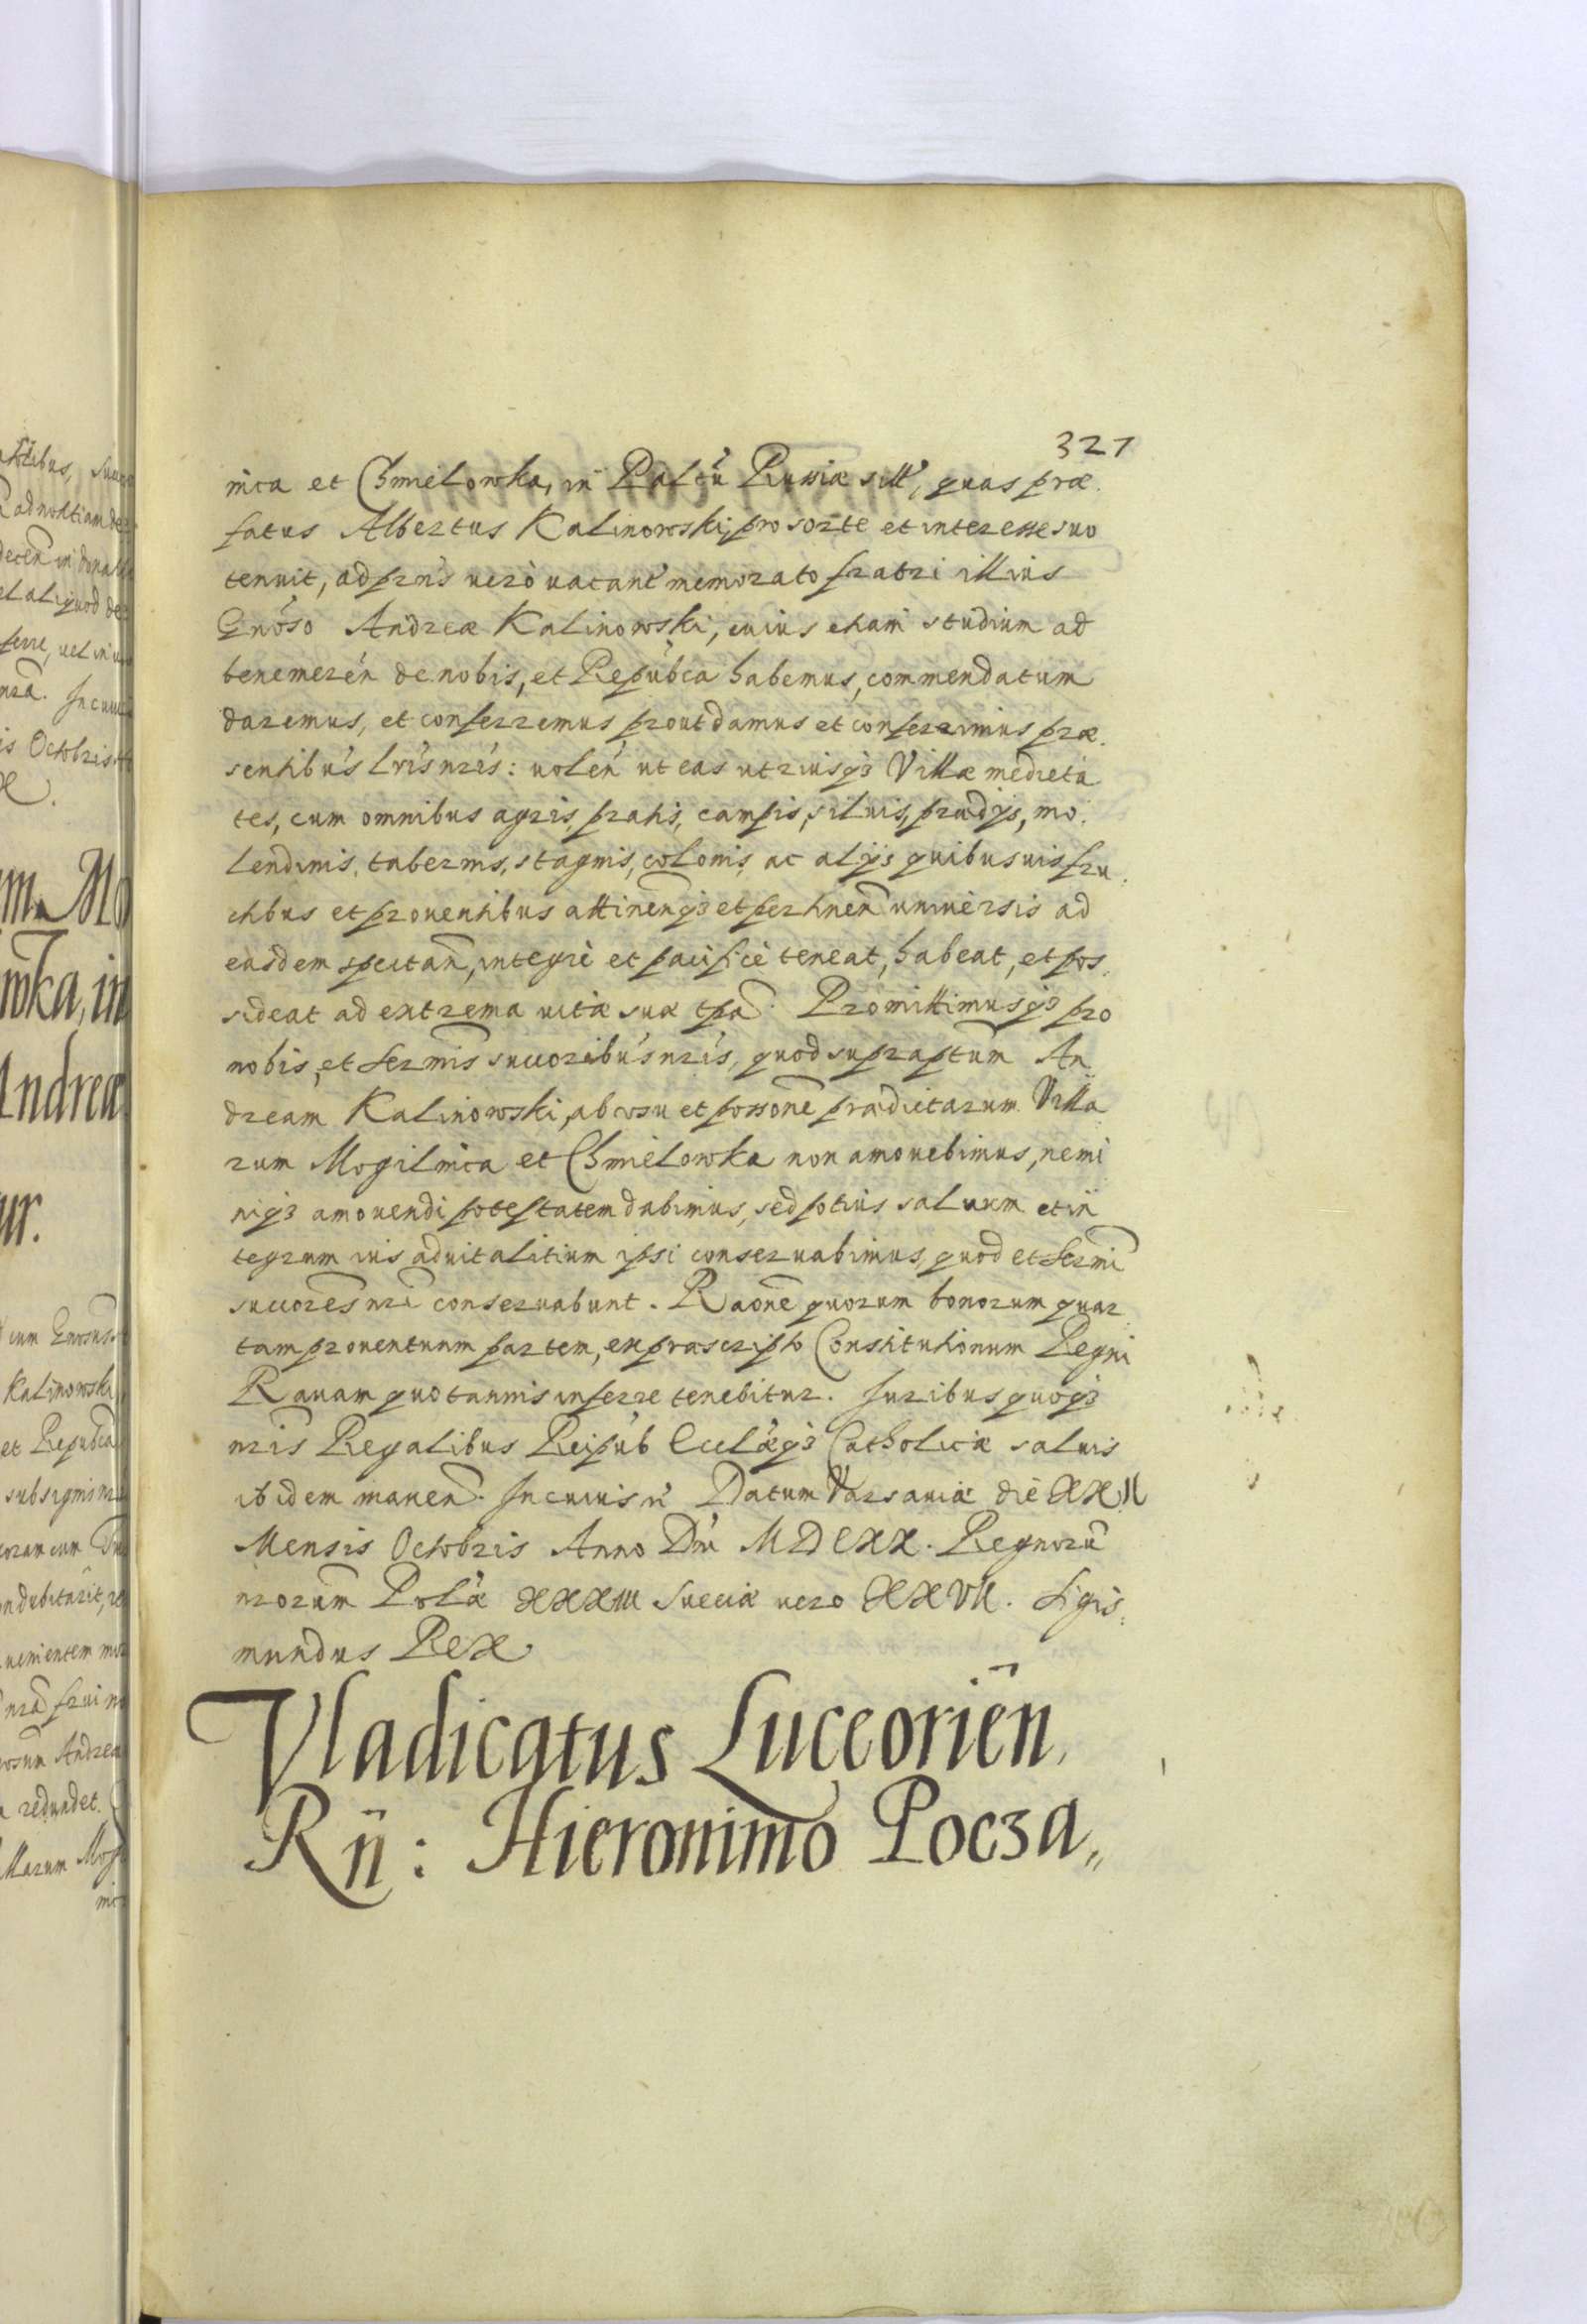 327
nica et Chmielowka, in Paltu Russiæ sitt, quas præ
fatus Albertus Kalinowski, pro sorte et interesse suo
tenuit, ad prns verò vacant memorato fratri illius
Gnoso Andreæ Kalinowski, cuius etiam studium ad
benemerén de nobis, et Repubca habemus, commendatum
daremus, et conferremus prout damus et conferimus præ
sentibus lris nris: volen ut eas utriusq3 Villæ medieta
tes, cum omnibus agris, pratis, campis, siluis, prædijs, mo
lendinis, tabernis, stagnis, colonis, ac alijs quibusuis fru
ctibus et prouentibus attinenq3 et pertinen uniuersis ad
easdem spectan, integrè et pacificè teneat, habeat, et pos
sideat ad extrema vitæ suæ tpa. Promittimusq3 pro
nobis, et Sermis succoribus nris, quod supraptum An
dream Kalinowski, ab usu et possone prædictarum Villa
rum Mogilnica et Chmielowka non amouebimus, nemi
niq3 amouendi potestatem dabimus, sed potius saluum et in
tegrum ius aduitalitium ipsi conseruabimus, quod et Sermi
succores nri conseruabunt. Raone quorum bonorum quar
tam prouentuum partem, ex præscripto Constitutionum Regni
Rauam quotannis inferre tenebitur. Juribus quoq3
nris Regalibus Reipub Ecclæq3 Catholicæ saluis
ibidem manen. In cuius r Datum Varsauiæ die XXII
Mensis Octobris Anno Dni MDCXX. Regnoru
nrorum Polæ XXXIII Sueciæ vero XXVII. Sigis
mundus Rex
Vladicatus Luceorien,
Rñ: Hieronimo Pocza„